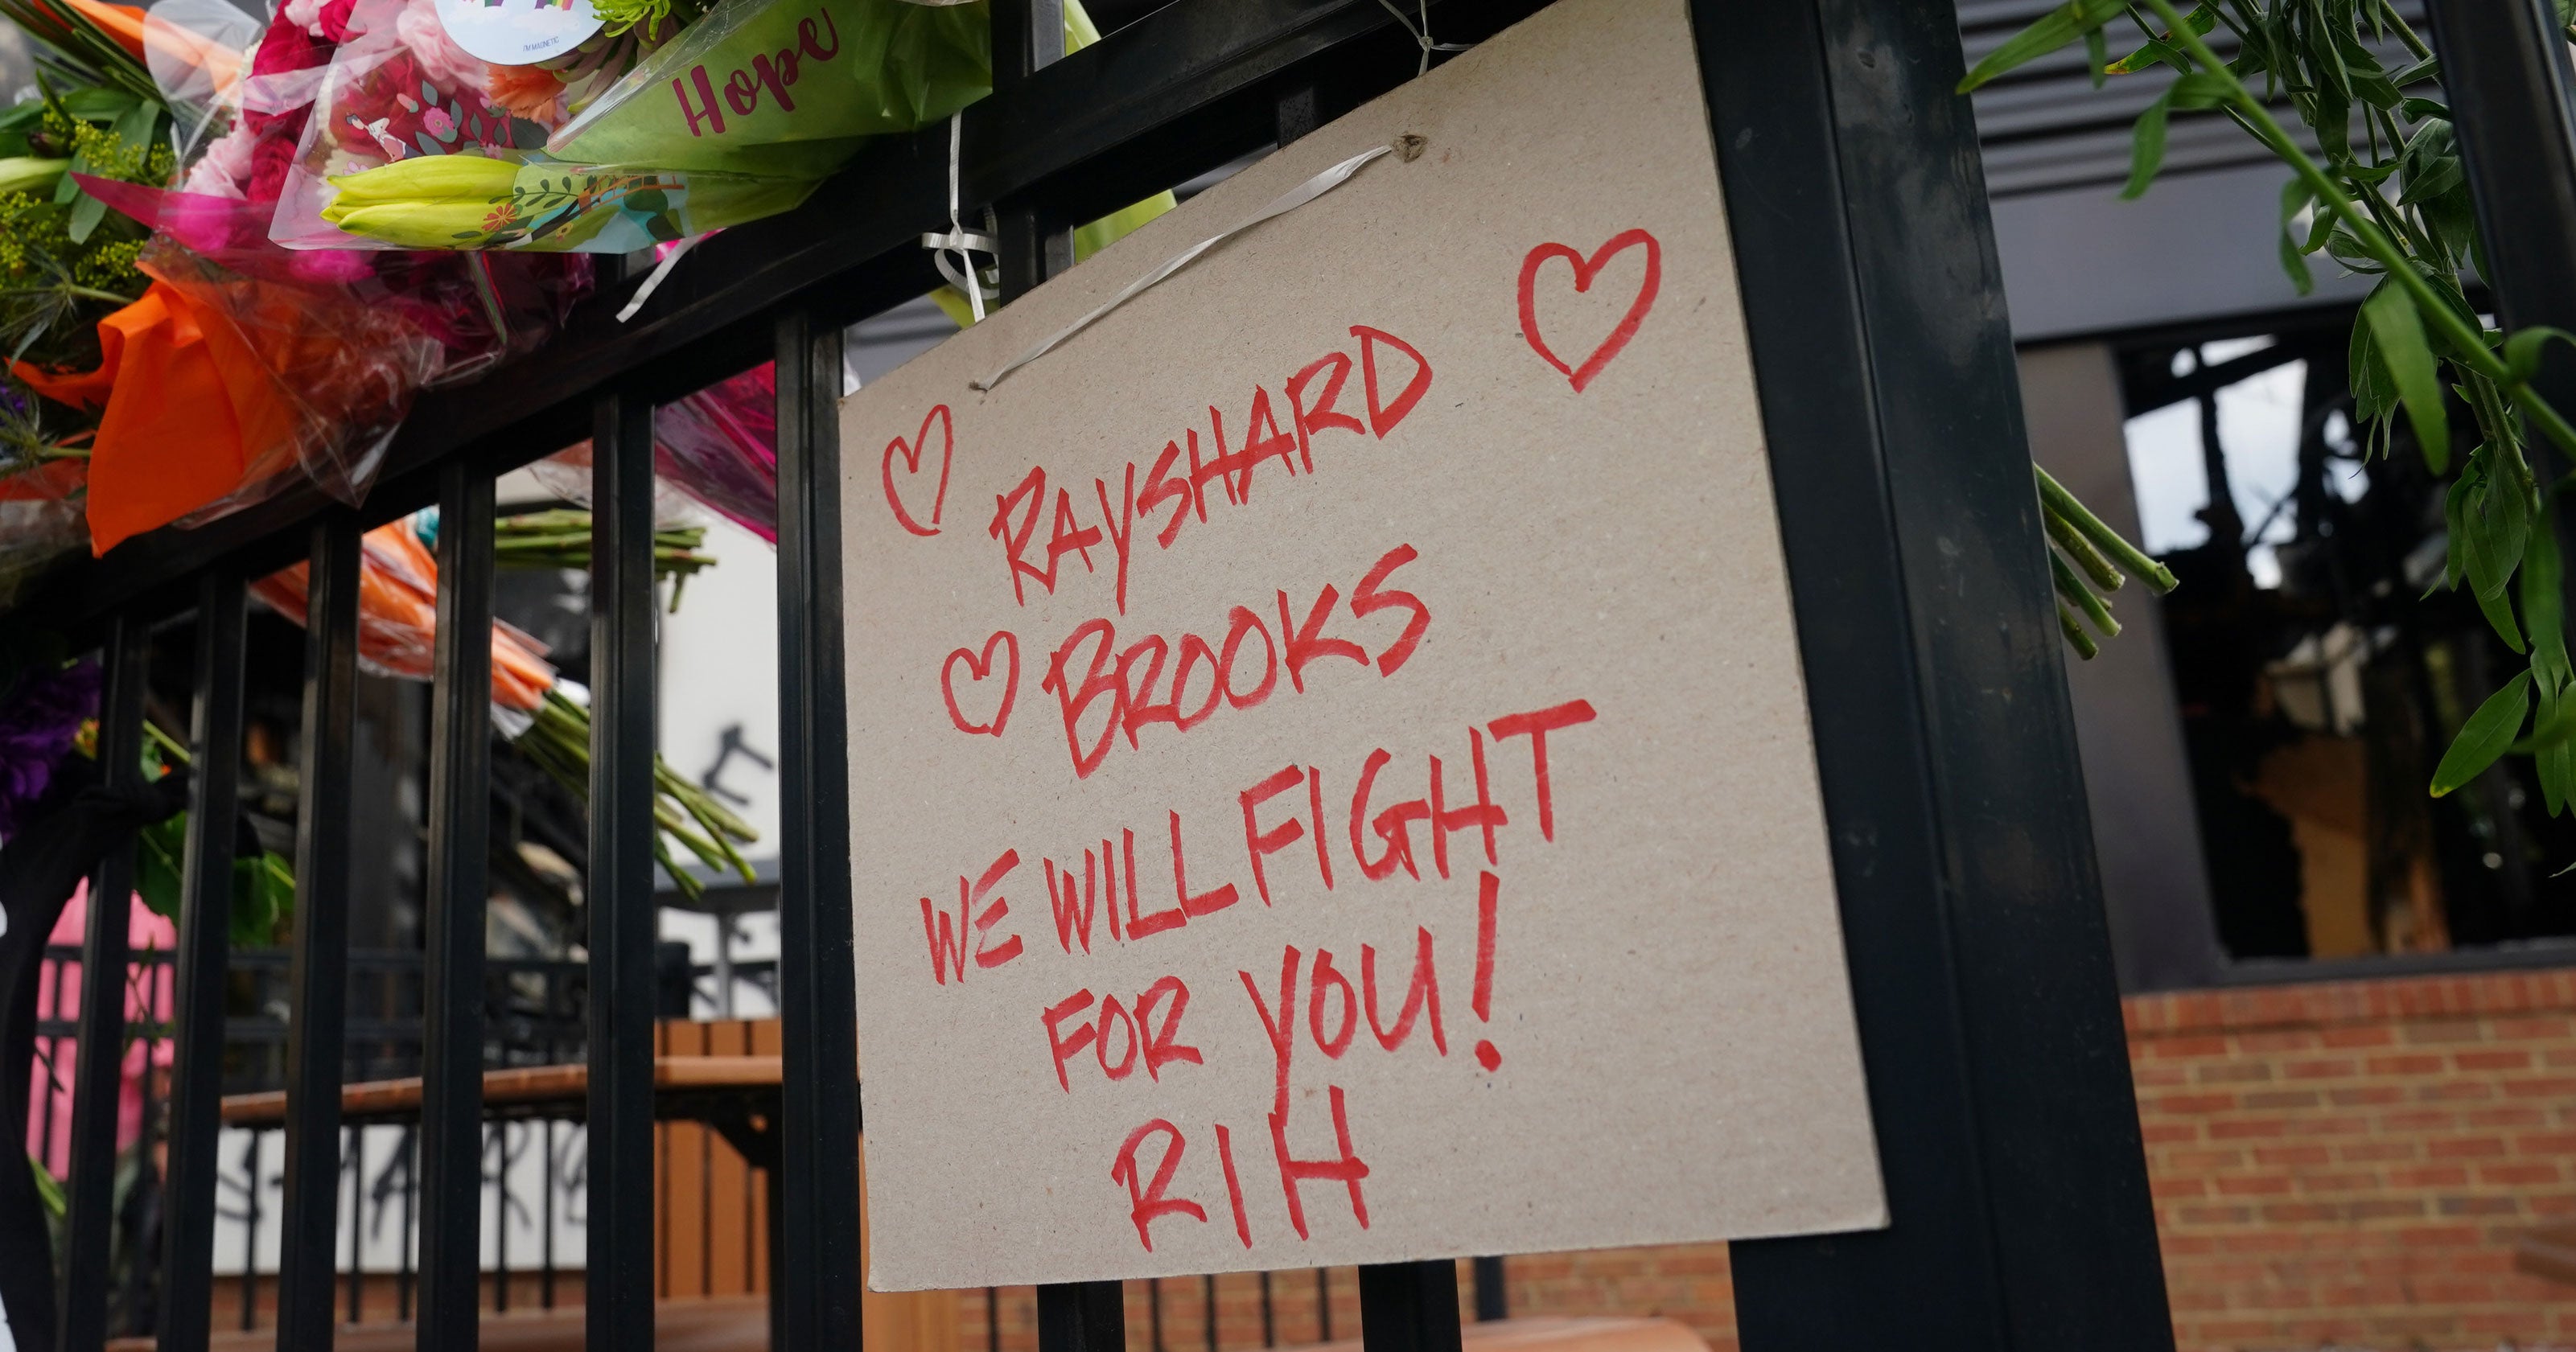 I'M MAGNETIC
Hope
RAYSHARD
BROOKS
WE WILL FIGHT
FOR YOU!
RIH